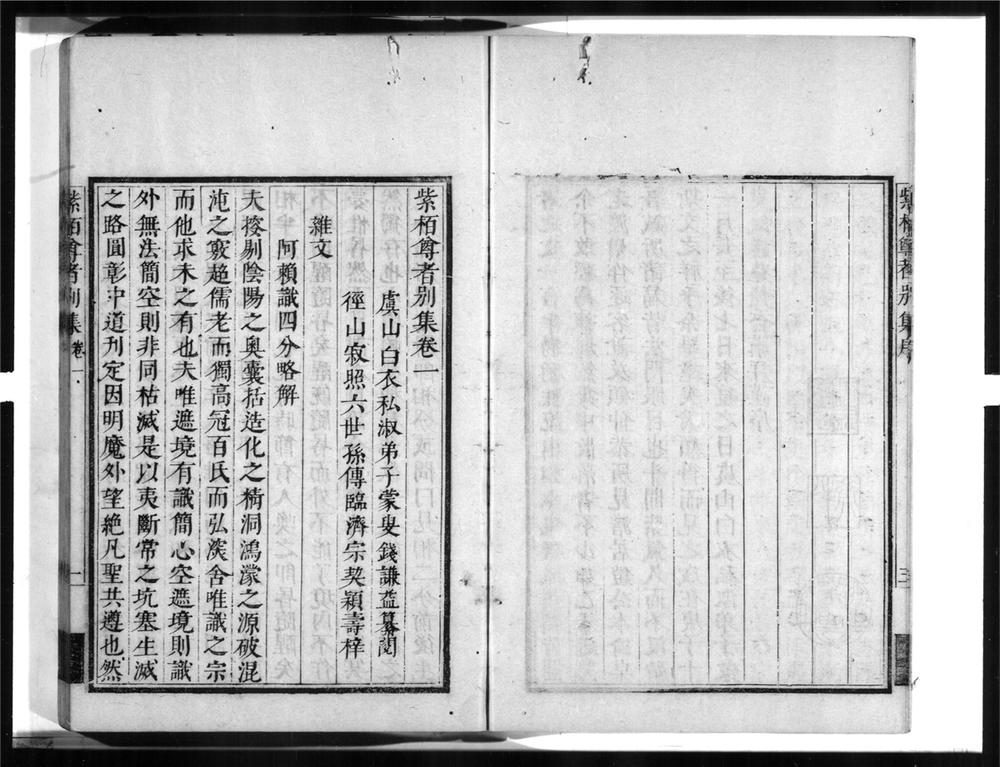 紫栢尊者別集序
三
紫栢尊者別集卷一
虞山白衣私淑弟子蒙叟錢謙益纂閱
徑山寂照六世孫傳臨濟宗契穎壽梓
雜文
阿賴識四分略解
夫搜剔陰陽之奧囊括造化之精洞鴻濛之源破混
沌之竅超儒老而獨高冠百氏而弘深舍唯識之宗
而他求未之有也夫唯遮境有識簡心空遮境則識
外無法簡空則非同枯滅是以夷斷常之坑塞生滅
之路圓彰中道刊定因明魔外望絶凡聖共遵也然
紫栢尊者別集 卷一
一